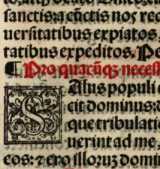 sanctis: a cūctis nos reᷓ
uersitatibus expiatos
tatibus expeditos. Pe
¶ Pro quacūq; necess
SAlus populi e
cit dominus
que tribulati
uerint ad me
eos: ⁊ ero illorum domi